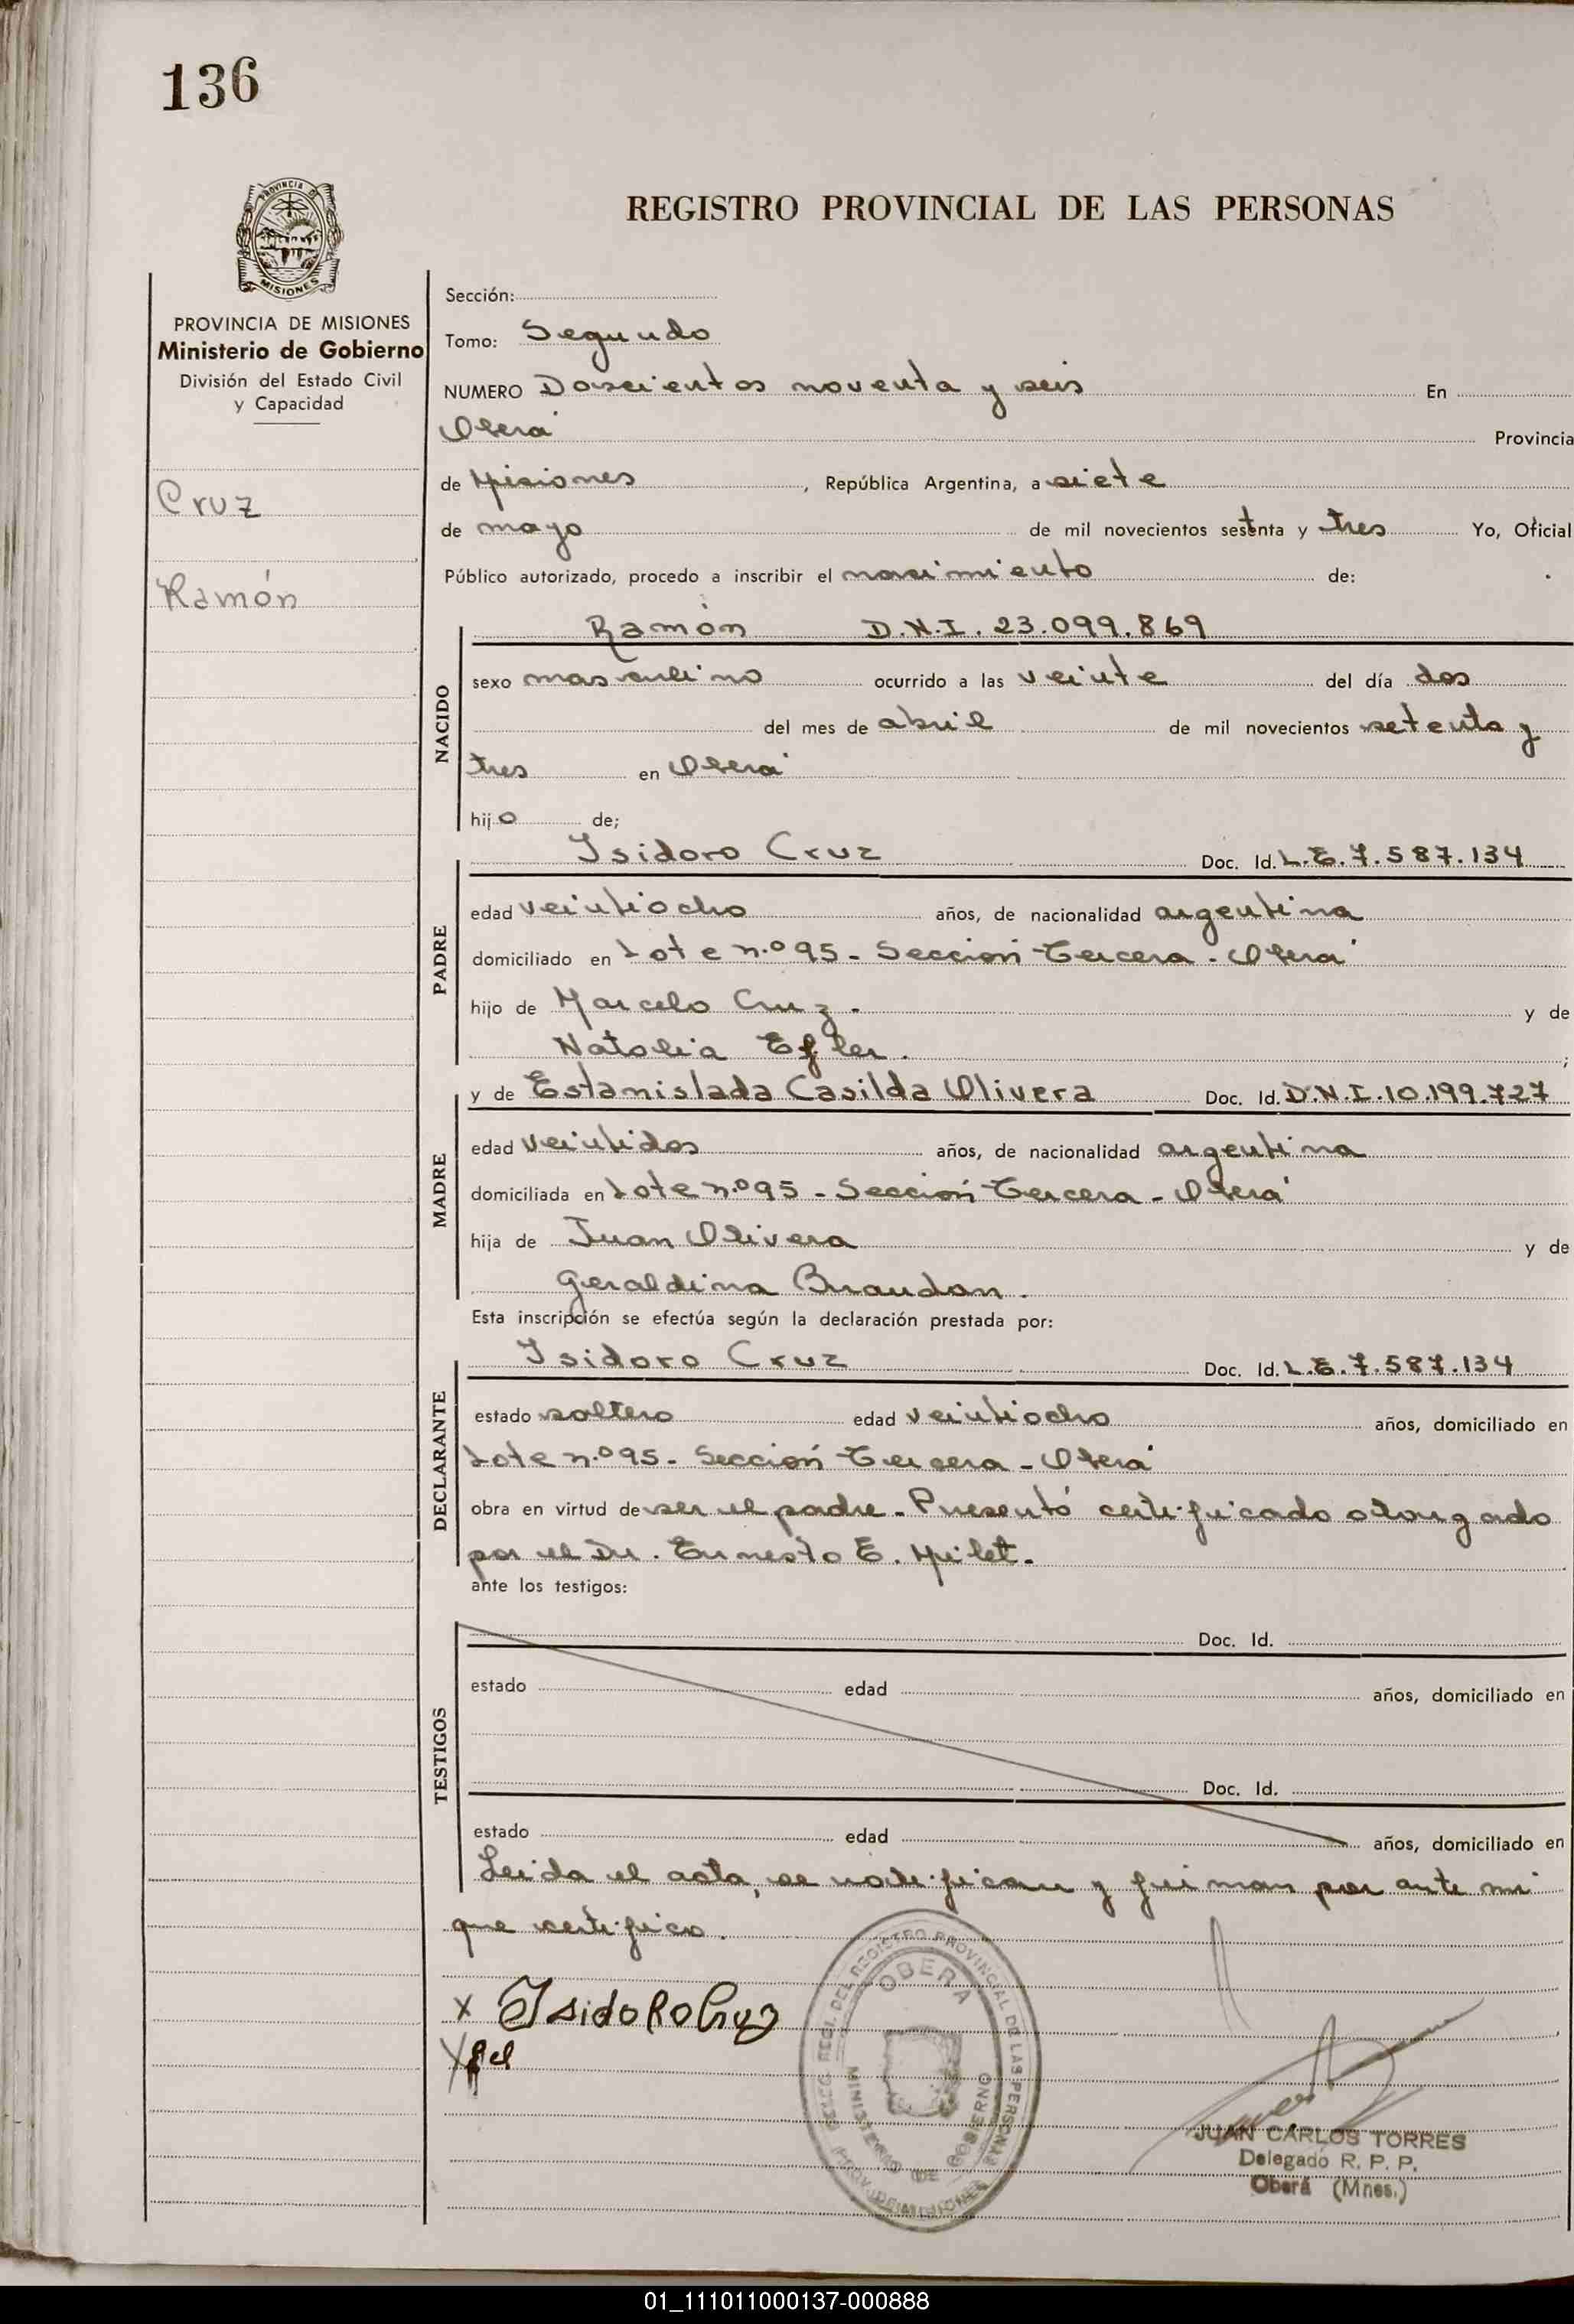 136
PROVINCIA DE
MISIONES
REGISTRO PROVINCIAL DE LAS PERSONAS
PROVINCIA DE MISIONES
Ministerio de Gobierno
División del Estado Civil
y Capacidad
Cruz
Ramón
Sección:
Tomo: Segundo
NUMERO Doscientos noventa y seis En
Oberá Provincia
de Misiones, República Argentina, a siete
de mayo de mil novecientos setenta y tres Yo, Oficial
Público autorizado, procedo a inscribir el nacimiento de:
Ramón D.N.I. 23.099.869
NACIDO
sexo masculino ocurrido a las veinte del día dos
del mes de abril de mil novecientos setenta y
tres en Oberá
hijo de;
Isidoro Cruz Doc. Id. L.E. 7.587.134
PADRE
edad veintiocho años, de nacionalidad argentina
domiciliado en Lote n.º 95 - Sección Tercera - Oberá
hijo de Marcelo Cruz. y de
Natalia Efler.;
y de Estanislada Casilda Olivera Doc. Id. D.N.I. 10.199.727
MADRE
edad veintidos años, de nacionalidad argentina
domiciliada en Lote n.º 95 - Sección Tercera - Oberá
hija de Juan Olivera y de
Geraldina Brandan.
Esta inscripción se efectúa según la declaración prestada por:
Isidoro Cruz Doc. Id. L.E. 7.587.134
DECLARANTE
estado soltero edad veintiocho años, domiciliado en
Lote n.º 95 - Sección Tercera - Oberá
obra en virtud de ser el padre - Presentó certificado otorgado
por el Dr. Ernesto E. Milet.
ante los testigos:
Doc. Id.
TESTIGOS
estado edad años, domiciliado en
Doc. Id.
estado edad años, domiciliado en
Leida el acta, se notifican y firman por ante mi
que certifico.
x Isidoro Cruz
REGISTRO PROVINCIAL DE LAS PERSONAS
OBERA
MINISTERIO DE GOBIERNO
JUAN CARLOS TORRES
Delegado R. P. P.
Oberá (Mnes.)
01_111011000137-000888